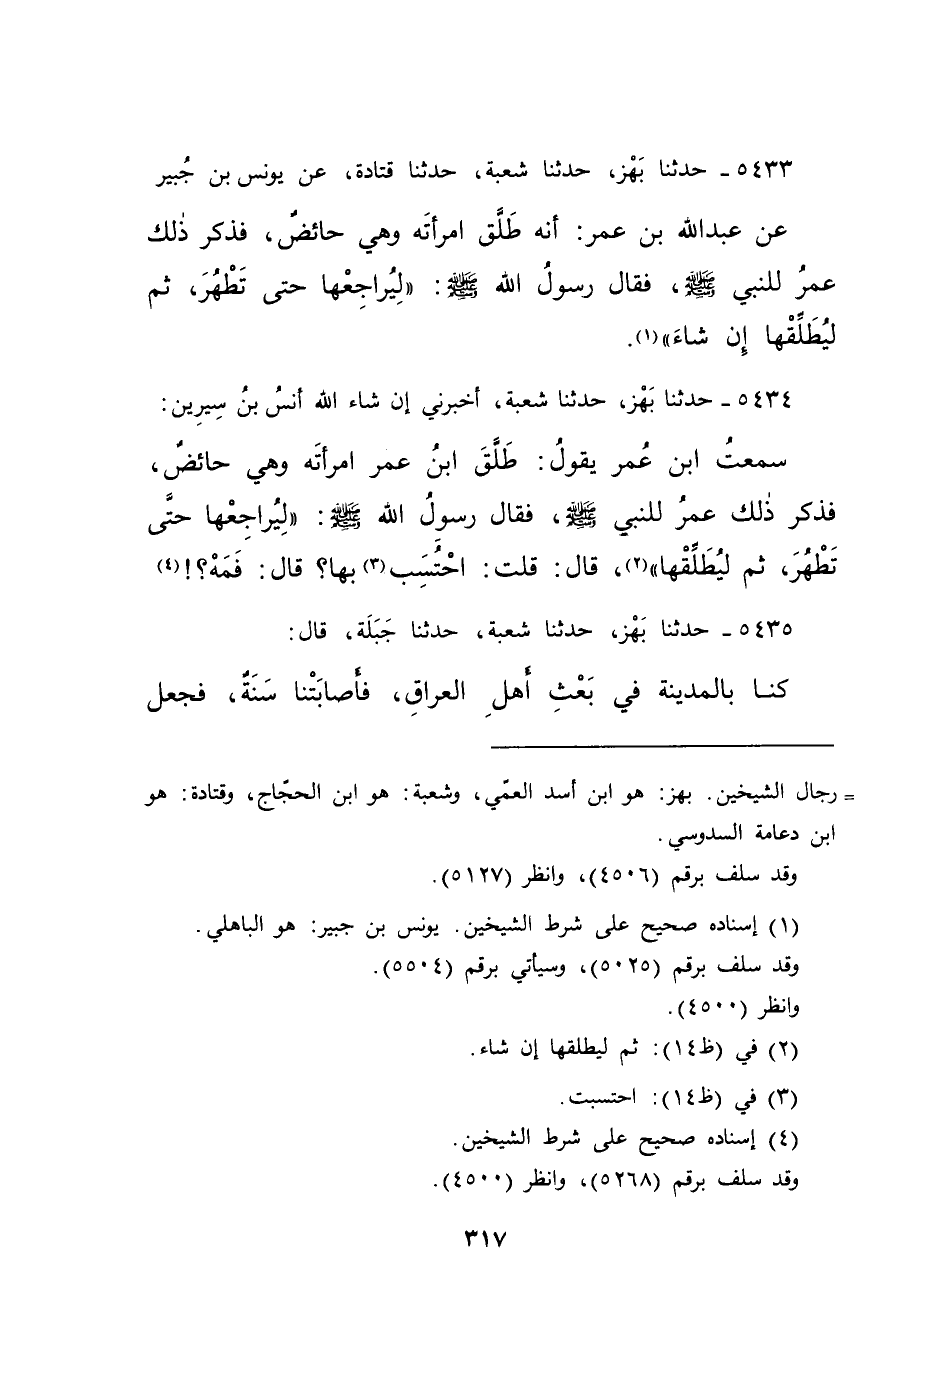 ٥٤٣٣ ـ حدثنا بَهْز، حدثنا شعبة، حدثنا قتادة، عن يونس بن جُبير
عن عبدالله بن عمر: أنه طَلَّق امرأتَه وهي حائضٌ، فذكر ذٰلك
عمرُ للنبي ﷺ، فقال رسولُ الله ﷺ: «لِيُراجِعْها حتى تَطْهُرَ، ثم
ليُطَلِّقْها إِن شاءَ»(١).
٥٤٣٤ ـ حدثنا بَهْز، حدثنا شعبة، أخبرني إن شاء الله أنسُ بنُ سِيرِين:
سمعتُ ابن عُمر يقولُ: طَلَّقَ ابنُ عمر امرأتَه وهي حائضٌ،
فذكر ذٰلك عمرُ للنبي ﷺ، فقال رسولُ الله ﷺ: «لِيُراجِعْها حتَّى
تَطْهُرَ، ثم ليُطَلِّقْها»(٢)، قال: قلت: احْتُسِب(٣) بها؟ قال: فَمَهْ؟!(٤)
٥٤٣٥ ـ حدثنا بَهْز، حدثنا شعبة، حدثنا جَبَلَة، قال:
كنا بالمدينة في بَعْثِ أَهلِ العراقِ، فأَصابَتْنا سَنَةٌ، فجعل
= رجال الشيخين. بهز: هو ابن أسد العمّي، وشعبة: هو ابن الحجّاج، وقتادة: هو
ابن دعامة السدوسي.
وقد سلف برقم (٤٥٠٦)، وانظر (٥١٢٧).
(١) إسناده صحيح على شرط الشيخين. يونس بن جبير: هو الباهلي.
وقد سلف برقم (٥٠٢٥)، وسيأتي برقم (٥٥٠٤).
وانظر (٤٥٠٠).
(٢) في (ظ١٤): ثم ليطلقها إن شاء.
(٣) في (ظ١٤): احتسبت.
(٤) إسناده صحيح على شرط الشيخين.
وقد سلف برقم (٥٢٦٨)، وانظر (٤٥٠٠).
٣١٧